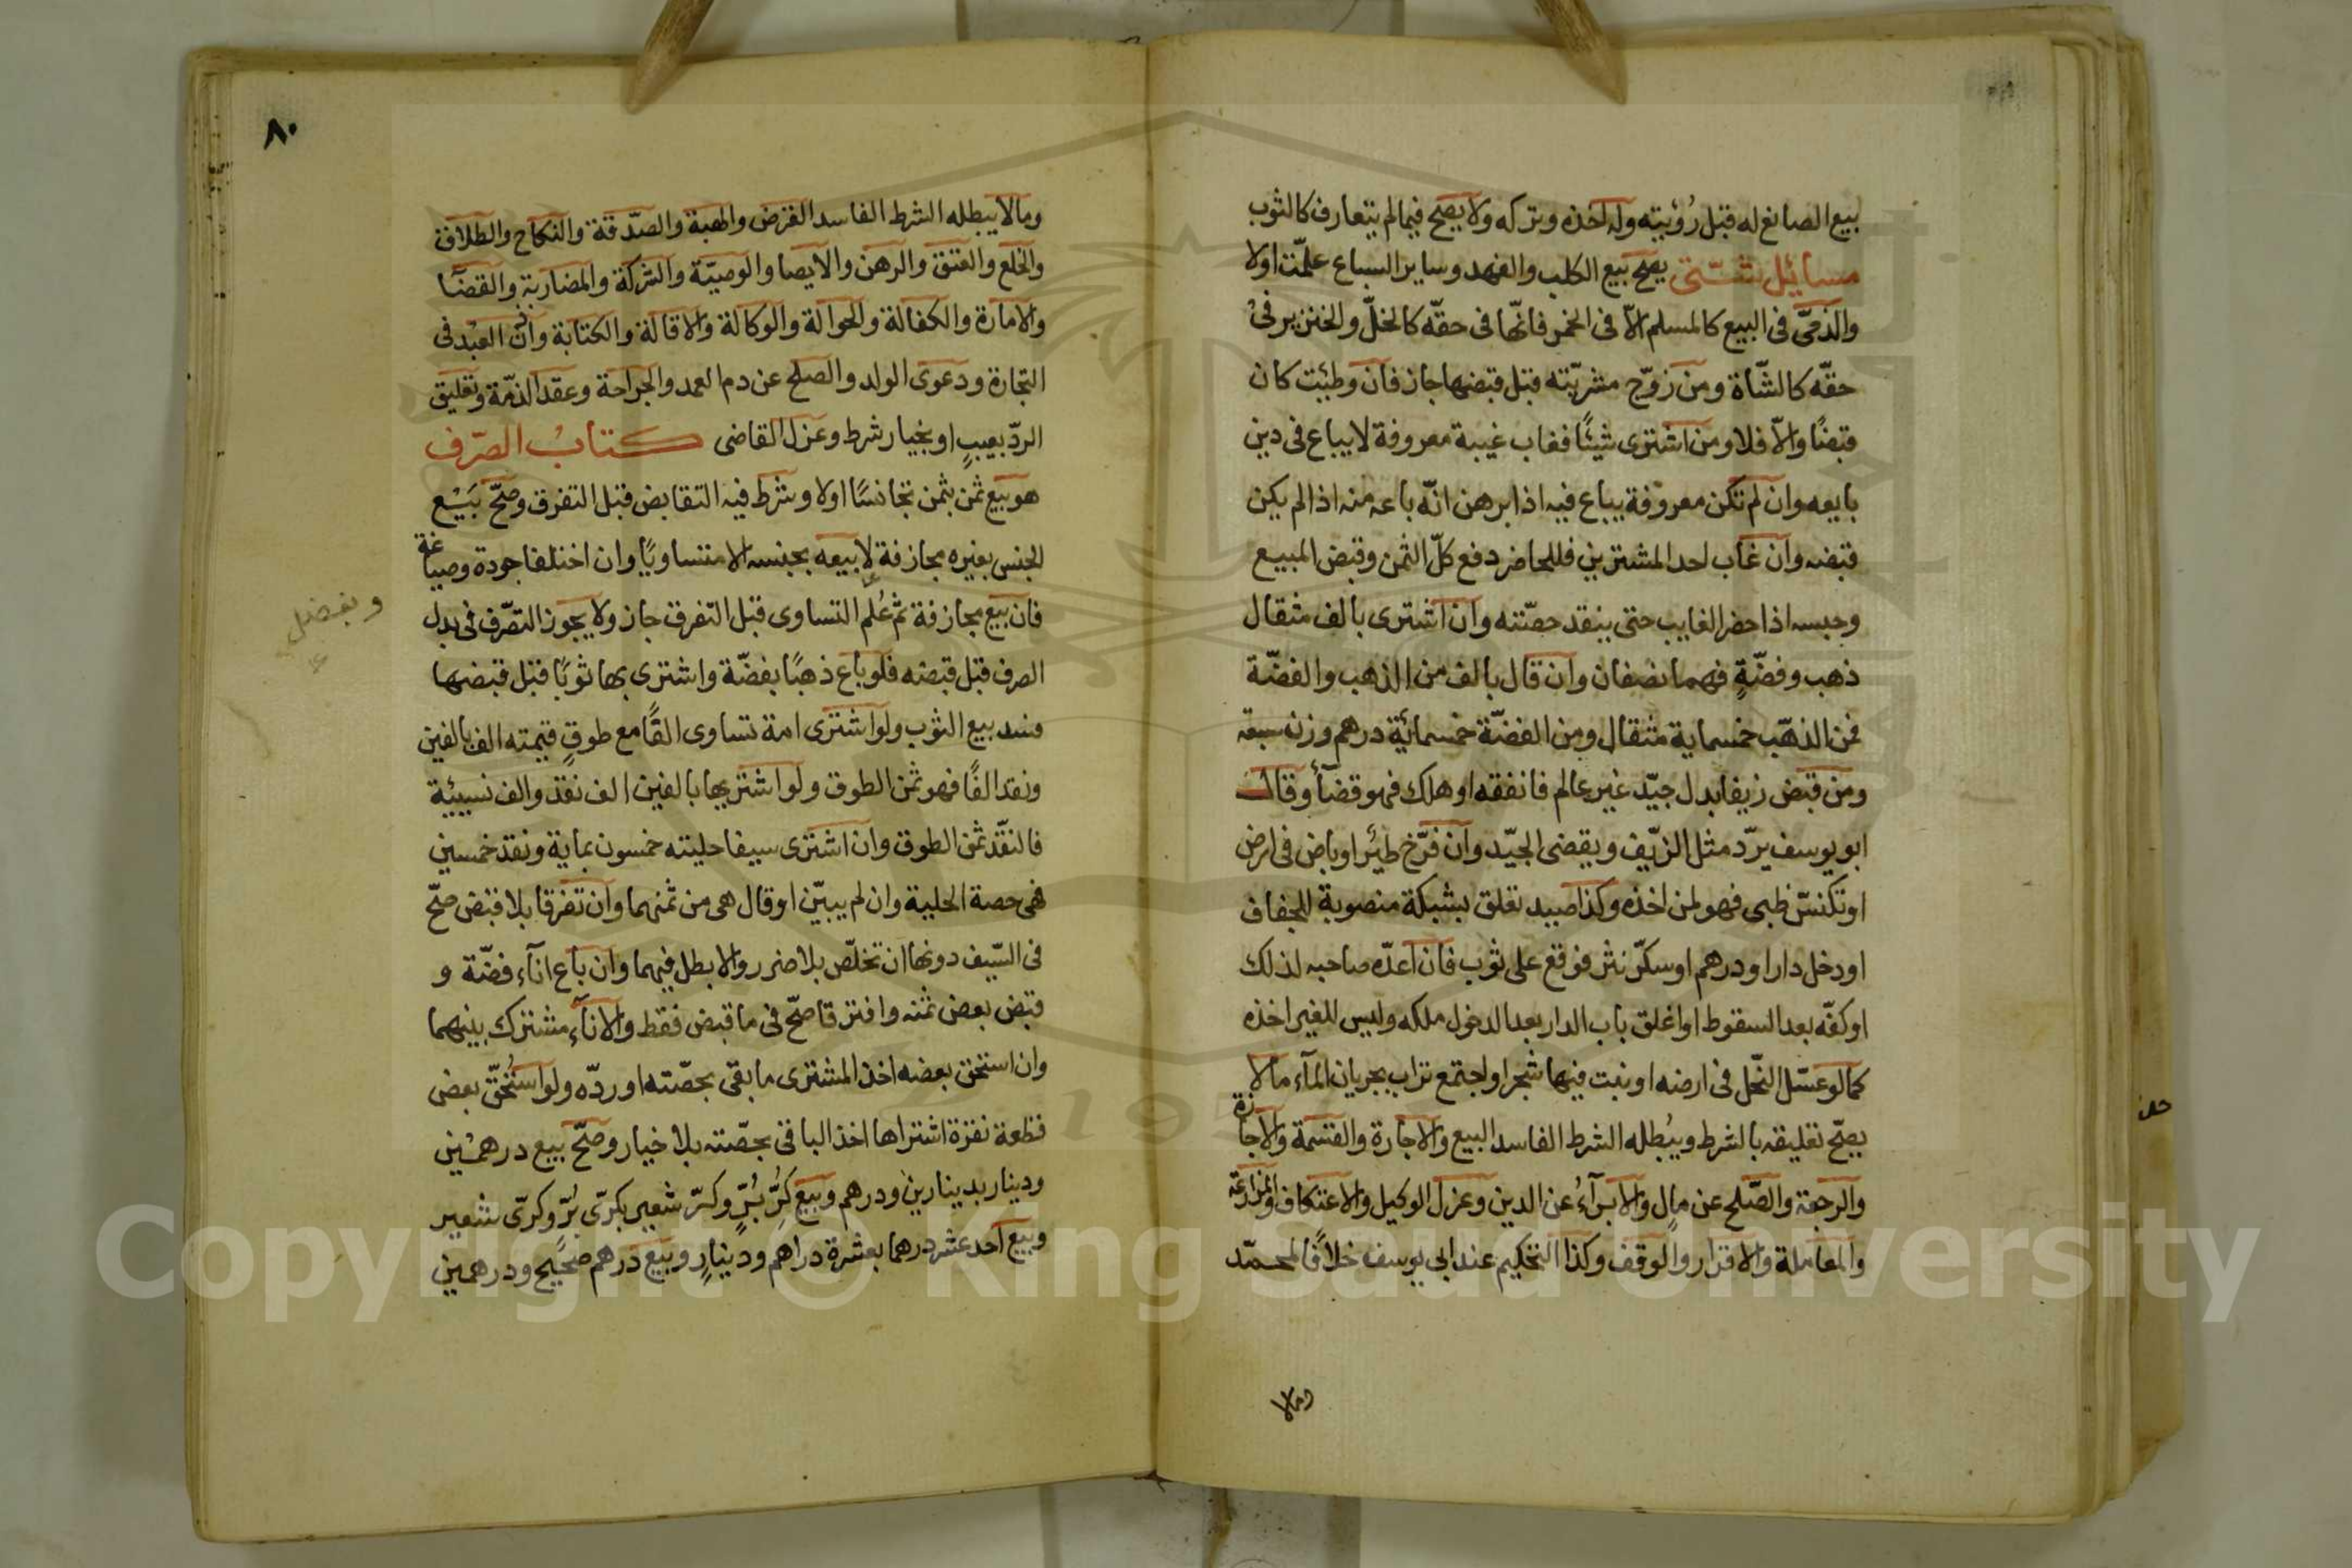 بيع الصانع له قبل رُؤيته وله اخذه وتركه ولا يصح فيما لم يتعارف كالثوب
مسائيل شتّى يصح بيع الكلب والفهد وساير السباع علّمت اولا
والذمىّ فى البيع كالمسلم الّا فى الخمر فانّها فى حقّه كالخلّ والخنزير فى
حقّه كالشّاة ومن زوّج مشريّته قبل قبضها جاز فان وطئت كان
قبضًا والّا فلا ومن اشترى شيئًا فغاب غيبة معروفة لا يباع فى دين
بايعه وان لم تكن معروفة يباع فيه اذا برهن انّه باعه منه اذا لم يكن
قبضه وان غاب احد المشتريين فللحاضر دفع كلّ الثمن وقبض المبيع
وحبسه اذا حضر الغايب حتى ينقد حصّته وان اشترى بالف مثقال
ذهب وفضّةٍ فهما نصفان وان قال بالف من الذهب والفضّة
فمن الذهّب خمسماية مثقال ومن الفضّة خمسمائية درهم وزن سبعة
ومن قبض زيفا بدل جيّد غير عالم فانفقه او هلك فهو قضآء وقال
ابو يوسف يردّ مثل الزيّف ويقضى الجيّد وان فرّخ طيئر او باض فى ارض
او تكنسّ ظبى فهو لمن اخذه وكذا صييد تعلق بشبكة منصوبة للجفاف
او دخل دارا ودرهم او سكرّ نثر فوقع على ثوب فان اعدّه صاحبه لذلك
او كفّه بعد السقوط او اغلق باب الدار بعد الدخول ملكه وليس للغير اخذه
كما لو عسّل النحّل فى ارضه او نبت فيها شجر او اجتمع تراب بجريان المآء ما لا
يصحّ تعليقه بالشرط ويبُطله الشرط الفاسد البيع والاجارة والقسمة والاجازة
والرجعة والصّلح عن مالٍ والابرآءُ عن الدين وعزل الوكيل والاعتكاف والمزارعة
والمعاملة والاقرار والوقف وكذا التحكيم عند ابى يوسف خلافًا لمحمّد
وما لا
٨٠
وما لا يبطله الشرط الفاسد القرض والهبة والصدّقة والنكاح والطلاق
والخلع والعتق والرهن والايصا والوصيّة والشركة والمضاربة والقضآ
والامارة والكفالة والحوالة والوكالة والاقالة والكتابة واذن العبد فى
التجارة ودعوى الولد والصلح عن دم العمد والجراحة وعقد الذمّة وتعليق
الردّ بعيبٍ او بخيار شرط وعزل القاضى كتابُ الصّرف
هو بيع ثمن بثمن تجانسًا اولا وشرط فيه التقابض قبل التفرق وصحّ بَيْع
الجنس بغيره مجازفة لا بيعه بجنسه الا متساويًا وان اختلفا جودة وصياغة
فان بيع مجازفة ثمّ عُلم التساوى قبل التفرق جاز ولا يجوز التصّرف فى بدل
الصرف قبل قبضه فلو باع ذهبًا بفضّة واشترى بها ثوبًا قبل قبضها
فسد بيع الثوب ولو اشترى امة تساوى الفًا مع طوقٍ قيمته الف بالفين
ونقد الفًا فهو ثمن الطوق ولو اشتريها بالفين الف نقد والف نسييئة
فالنقّد ثمن الطوق وان اشترى سيفا حليته خمسون بماية ونقد خمسين
فهى حصة الحلية وان لم يبيّن او قال هى من ثمنهما وان تفرقا بلا قبض صحّ
فى السّيف دونها ان تخلّص بلا ضرر والا بطل فيهما وان باع انآء فضّة و
قبض بعض ثمنه وافترقا صحّ فى ما قبض فقط والانآء مشترك بينهما
وان استحق بعضه اخذ المشترى ما بقى بحصّته او ردّه ولو استُحقّ بعض
قطعة نقرة اشتراها اخذ الباقى بحصّته بلا خيار وصحّ بيع درهمين
ودينار بدينارين ودرهم وبيع كرِّ بُرٍّ وكرّ شعير بكرّى برّ وكرّى شعير
وبيع احد عشر درهما بعشرة دراهم ودينارٍ وبيع درهم صحيح ودرهمين
وبفضل
Copyright © King Saud University